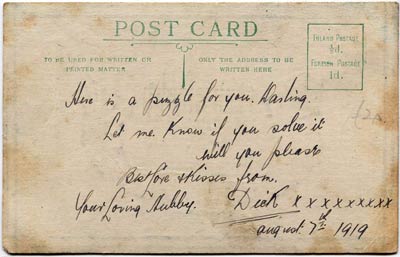 POST CARD
TO BE USED FOR WRITTEN OR
PRINTED MATTER.
ONLY THE ADDRESS TO BE
WRITTEN HERE
INLAND POSTAGE
½d.
FOREIGN POSTAGE
1d.
Here is a puzzle for you. Darling.
Let me. Know if you solve it
will you please
Best Love & Kisses from.
Your Loving Hubby. Dick x x x x x x x x x
august 7th 1919